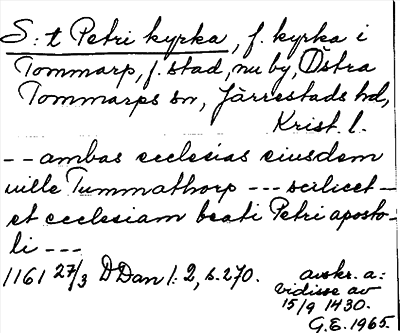 S:t Petri kyrka, f. kyrka i
Tommarp, f. stad, nu by, Östra
Tommarps sn, Järrestads hd,
Krist. l.
-- ambas ecclesias eiusdem
uille Tummathorp --- scilicet -
et ecclesiam beati Petri aposto-
li ---
1161 27/3 DDan 1:2, s. 270.
avskr. a:
vidisse av
15/9 1430.
G.E. 1965.